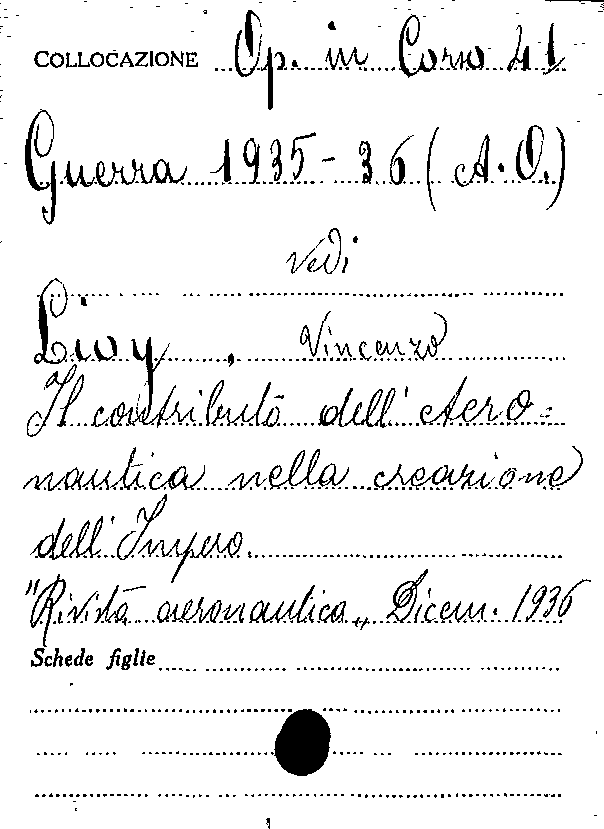 COLLOCAZIONE Op. in Corso 41
Guerra 1935-36 (A.O.)
vedi
Lioy, Vincenzo
Il contributo dell'Aero=
nautica nella creazione
dell'Impero.
"Rivista aeronautica„ Dicem. 1936
Schede figlie